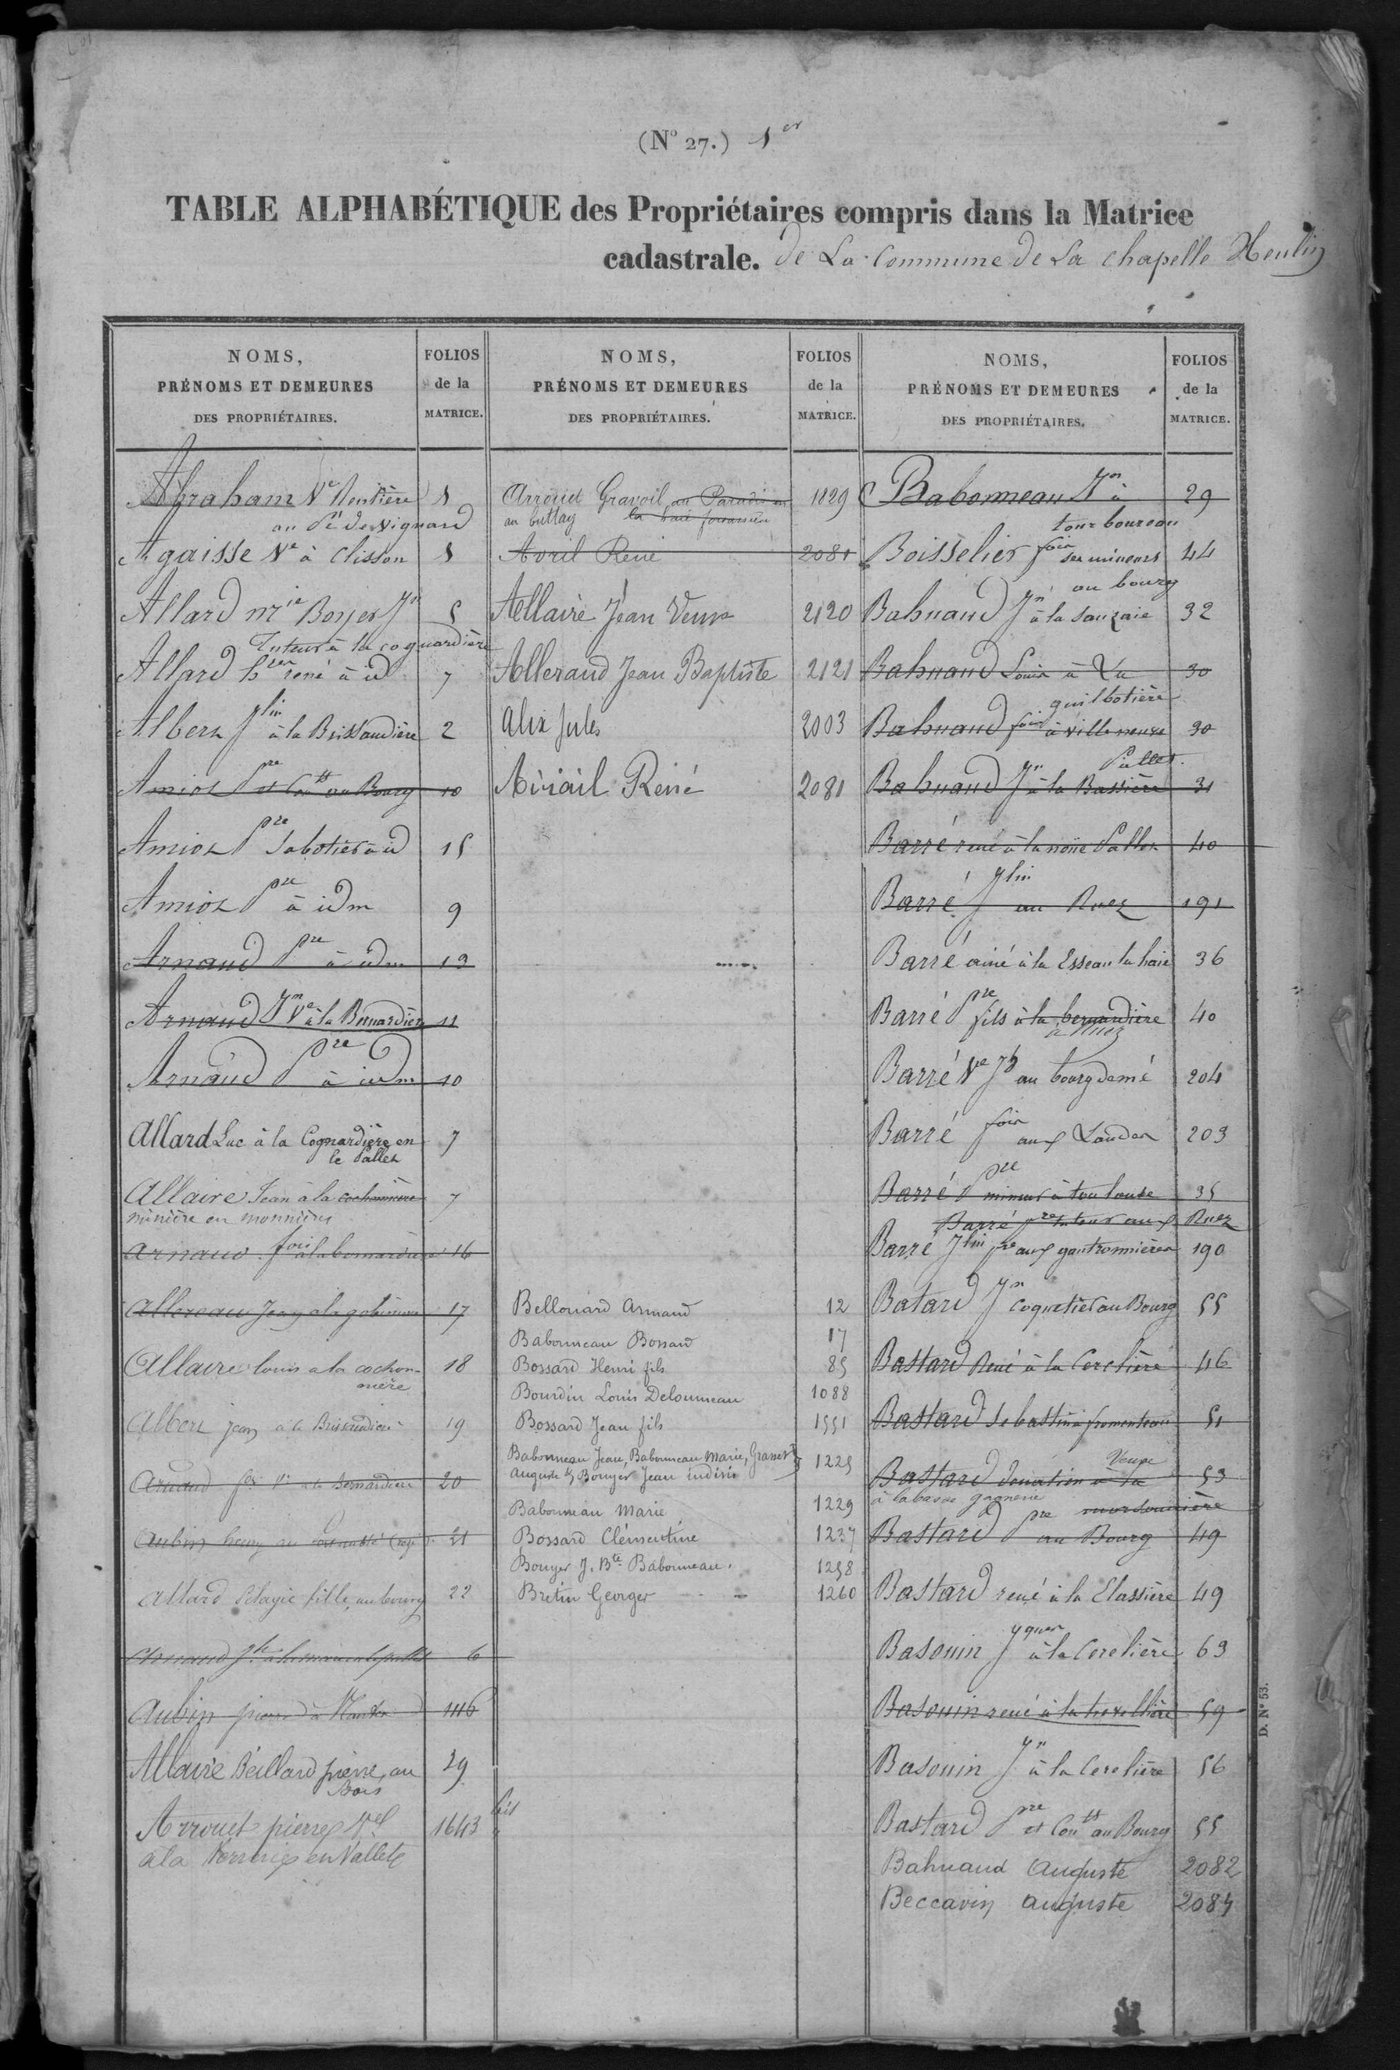 (N° 27.) 1er
TABLE ALPHABÉTIQUE des Propriétaires compris dans la Matrice
cadastrale. de La Commune de La Chapelle Heulin
NOMS,
PRÉNOMS ET DEMEURES
DES PROPRIÉTAIRES.
FOLIOS
de la
MATRICE.
Abraham Ve Rentière 1
au Pé de Vignard
Agaisse Ve à Clisson 1
Allard Mie Boyer Jn 5
Tuteur à la coquardière
Allard hers rené à id 7
Albert Jlin à la Brissaudière 2
Amiot Pre et Contts au Bourg 10
Amiot Pre Sabotier à id 15
Amiot Pre à idm 9
Arnaud Pre à idm 13
Arnaud Jn Ve à la Bernardière 11
Arnaud Pre à idm 10
Allard Luc à la Cognardière en 7
le Pallet
Allaire Jean à la cochonnière 7
minière en monnières
Arnaud fois à la bernardière 16
Allereau Jean à la 17
Allaire louis a la cochon- 18
nière
Albert jean a la Brissaudière 19
Arnaud Ve a la Bernardière 20
Aubin 21
Allard Pélagie fille, au bourg 22
Arnaud 6
Aubin pierre à 146
Allaire Beillard pierre, au 29
Bois
Arrouet pierre Vel 1643 bis
a la en Vallet
NOMS,
PRÉNOMS ET DEMEURES
DES PROPRIÉTAIRES.
FOLIOS
de la
MATRICE.
Arrouet Gravoil au Paradis en 1129
au buttay la haie fouassière
Avril René 2081
Allaire Jean Veuve 2120
Alleraud Jean Baptiste 2121
Alix Jules 2003
Aviail René 2081
Bellouard Armand 12
Babonneau Bossard 17
Bossard Henri fils 85
Bourdin Louis Delaunneau 1088
Bossard Jean fils 1551
Babonneau Jean, Babonneau Marie, 1225
Auguste & Bouyer Jean indivis
Babonneau Marie 1229
Bossard Clémentine 1237
Bouyer J. Bte Babonneau. 1258
Bretin Georges 1260
NOMS,
PRÉNOMS ET DEMEURES
DES PROPRIÉTAIRES.
FOLIOS
de la
MATRICE.
Babonneau Jn à 29
tour boureau
Boisselier fois ses mineurs 44
au bourg
Bahuaud Jn à la Sauzaie 32
Bahuaud Louis à La 30
guilbotière
Bahuaud fois à villeneuve 30
Pallet.
Bahuaud Jn à la Bassière 31
Barré rené à la noue Pallet 40
Barré Jlin au Ruez 191
Barré ainé à la Esseau la haie 36
Barré Pre fils à la bernardière 40
à Ruez
Barré Ve Jh au bourg demé 204
Barré fois aux Landes 203
Barré Pre mineur à toulouse 35
Barré Pre tuteur aux Ruez
Barré Jlin Pre aux gautronnières 190
Batard Jn coquetier au Bourg 55
Bastard René à la Cerclière 46
Bastard Sebastien à fromenteau 51
Bastard Donatien à la Veuve 53
à la basse gagnerie
Bastard Pre au Bourg 49
Bastard rené à la Classière 49
Basouin Jques à la Cerclière 63
Basouin rené à la 59
Basouin Jn à la Cerclière 56
Bastard Pre et Contts au Bourg 55
Bahuaud Auguste 2082
Beccavin Auguste 2084
D. N° 53.